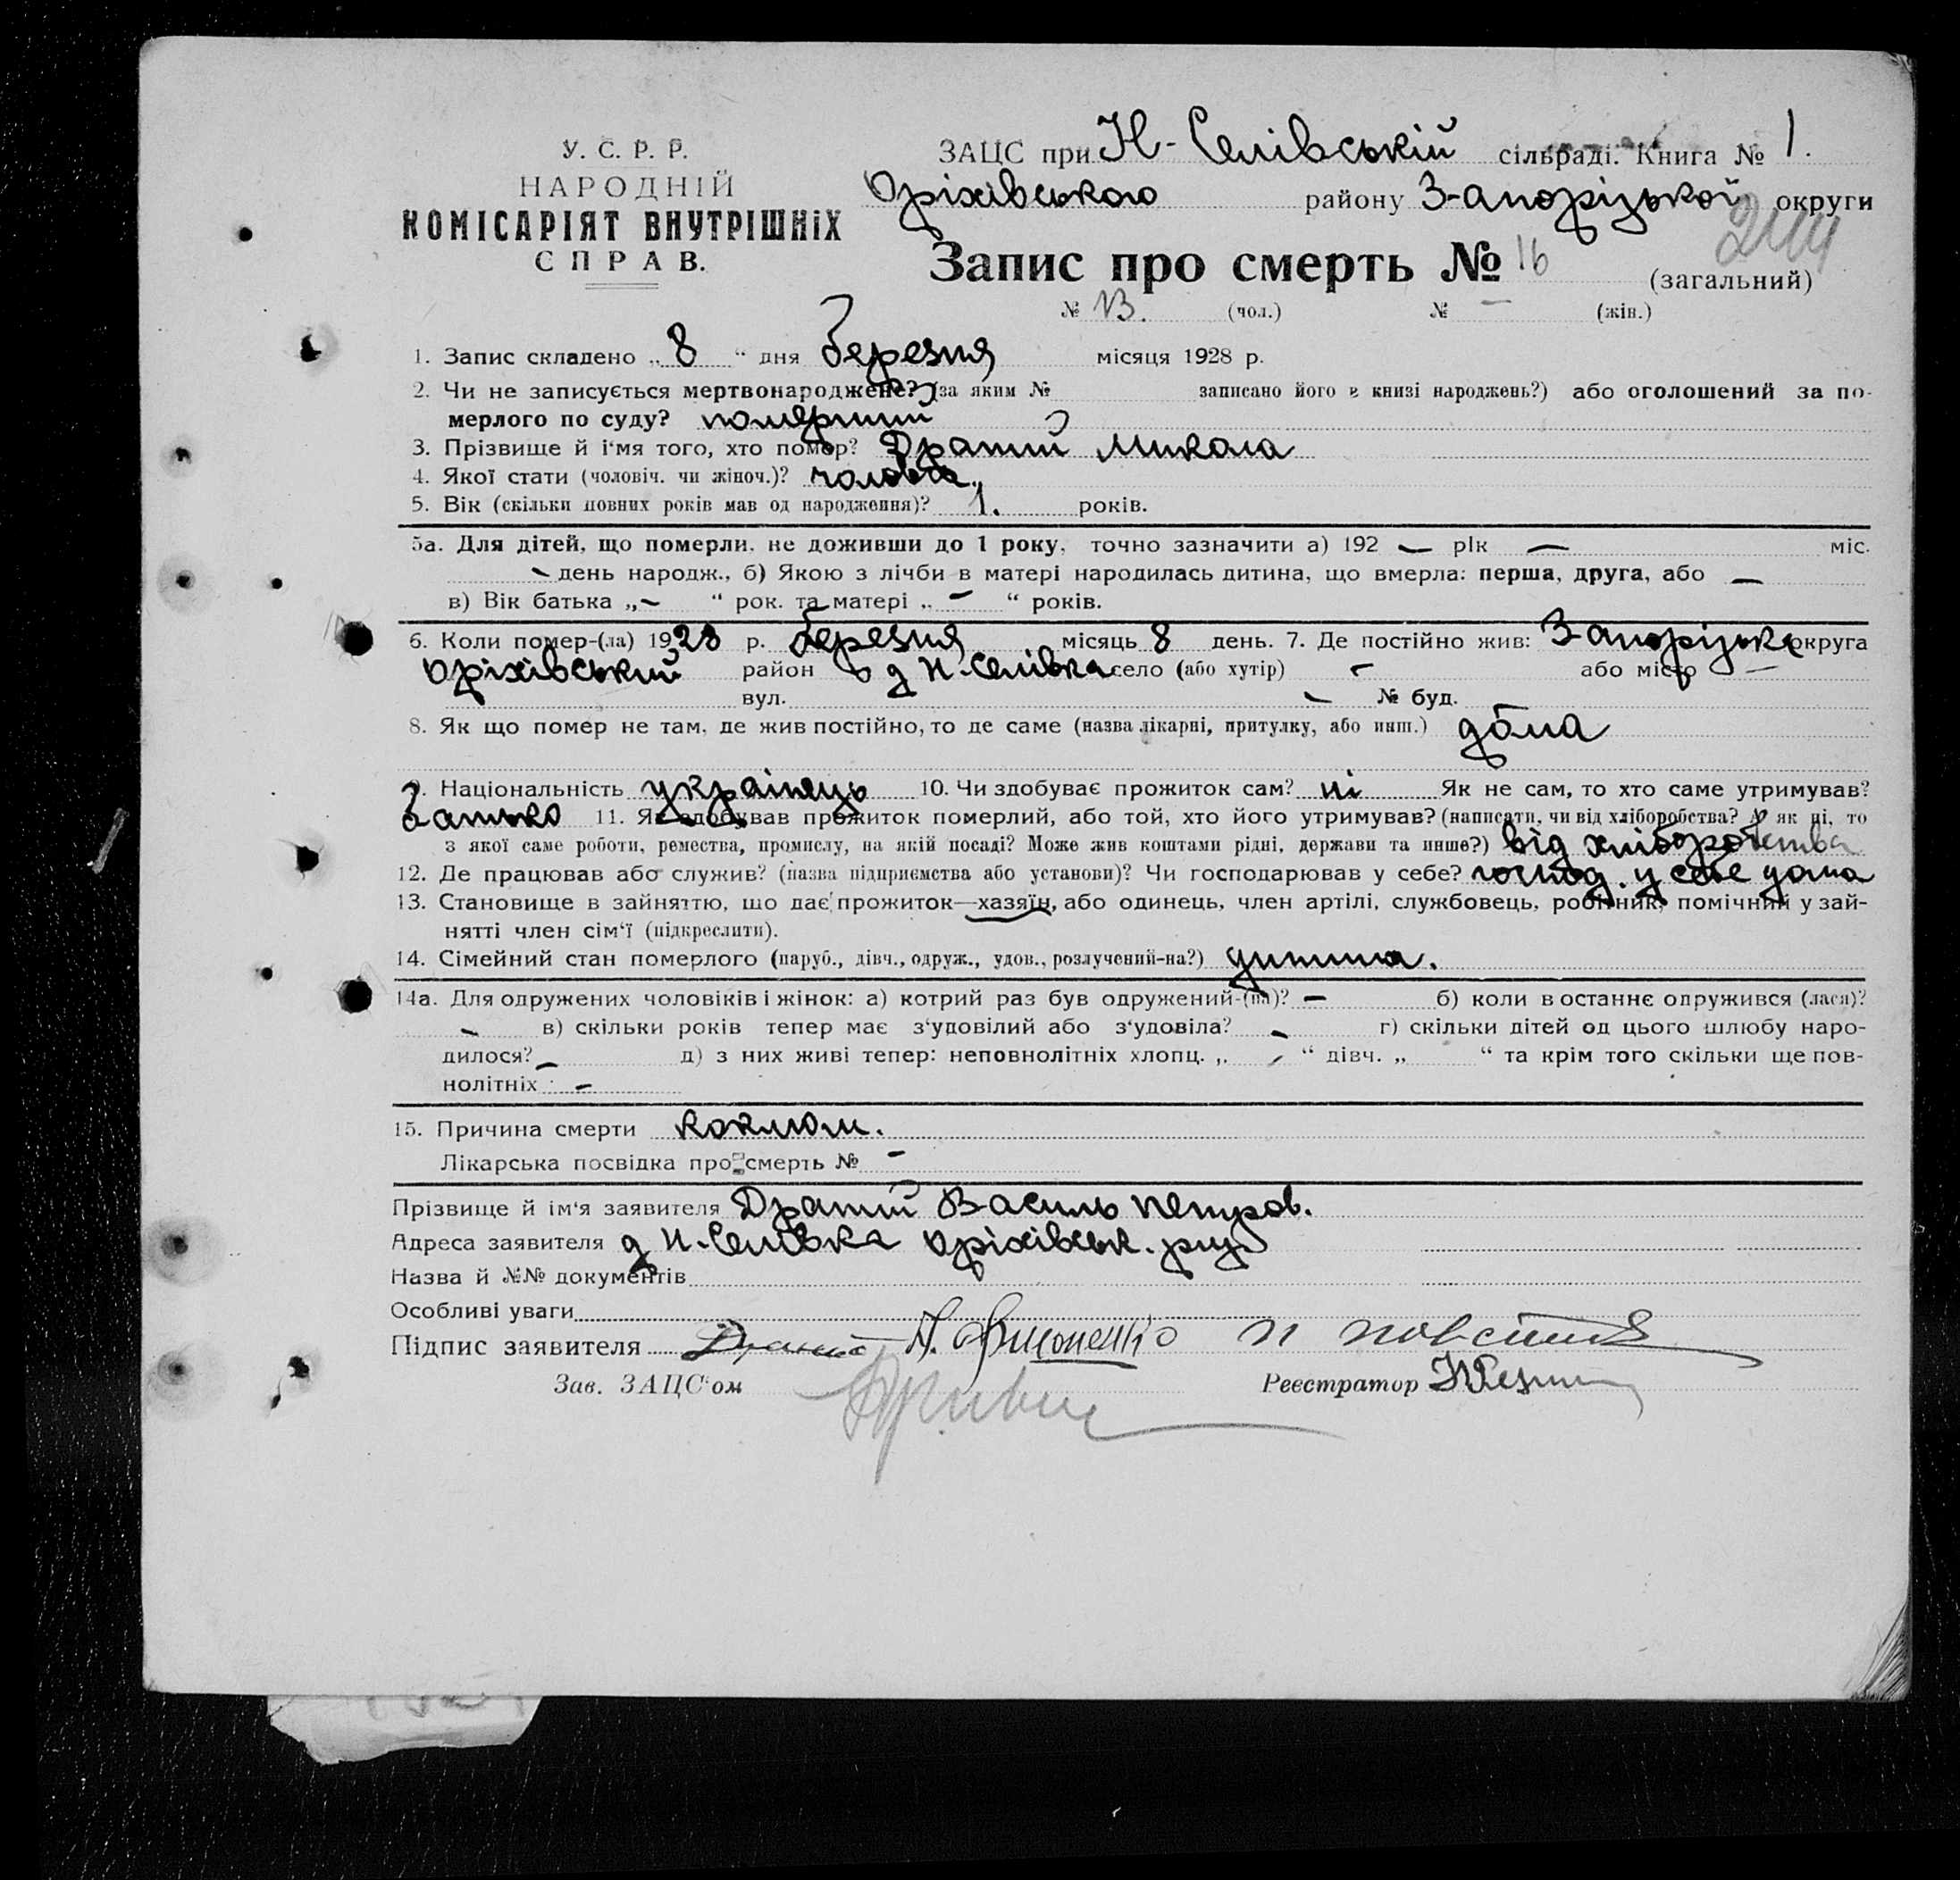 У. С. Р. Р.
НАРОДНІЙ
КОМІСАРІЯТ ВНУТРІШНІХ
СПРАВ.
ЗАЦС при Н-Селівській сільраді. Книга № 1.
Оріхівського району З-апоріцької округи
244
Запис про смерть № 16 (загальний)
№ 13. (чол.) № — (жін.)
1. Запис складено „ 8 “ дня березня місяця 1928 р.
2. Чи не записується мертвонароджене? (за яким № записано його в книзі народжень?) або оголошений за по-
мерлого по суду? помярший
3. Прізвище й і'мя того, хто помер? Драний Микола
4. Якої стати (чоловіч. чи жіноч.)? чоловіч.
5. Вік (скільки повних років мав од народження)? 1. років.
5а. Для дітей, що померли, не доживши до 1 року, точно зазначити а) 192 — рік — міс.
— день народж., б) Якою з лічби в матері народилась дитина, що вмерла: перша, друга, або —
в) Вік батька „ — “ рок. та матері „ — “ років.
6. Коли помер-(ла) 1928 р. березня місяць 8 день. 7. Де постійно жив: З-апоріцька округа
Оріхівський район д Н-Селівка село (або хутір) — або місто —
вул. — № буд.
8. Як що помер не там, де жив постійно, то де саме (назва лікарні, притулку, або инш.) дома
9. Національність українець 10. Чи здобуває прожиток сам? ні Як не сам, то хто саме утримував?
батько 11. Як здобував прожиток померлий, або той, хто його утримував? (написати, чи від хліборобства? А як ні, то
з якої саме роботи, ремества, промислу, на якій посаді? Може жив коштами рідні, держави та инше?) від хліборобства
12. Де працював або служив? (назва підприємства або установи)? Чи господарював у себе? господ. у себе дома
13. Становище в зайняттю, що дає прожиток—хазяїн, або одинець, член артілі, службовець, робітник, помічний у зай-
нятті член сім'ї (підкреслити).
14. Сімейний стан померлого (паруб., дівч., одруж., удов., розлучений-на?) дитина.
14а. Для одружених чоловіків і жінок: а) котрий раз був одружений-(на)? — б) коли в останнє одружився (лася)?
— в) скільки років тепер має з'удовілий або з'удовіла? — г) скільки дітей од цього шлюбу наро-
дилося? — д) з них живі тепер: неповнолітніх хлопц. „ — “ дівч. „ “ та крім того скільки ще пов-
нолітніх: —
15. Причина смерти коклюш.
Лікарська посвідка про смерть № —
Прізвище й ім'я заявителя Драний Василь Петров.
Адреса заявителя д Н-Селівка Оріхівськ. рну
Назва й №№ документів
Особливі уваги
Підпис заявителя Драний
Зав. ЗАЦС'ом
Реєстратор